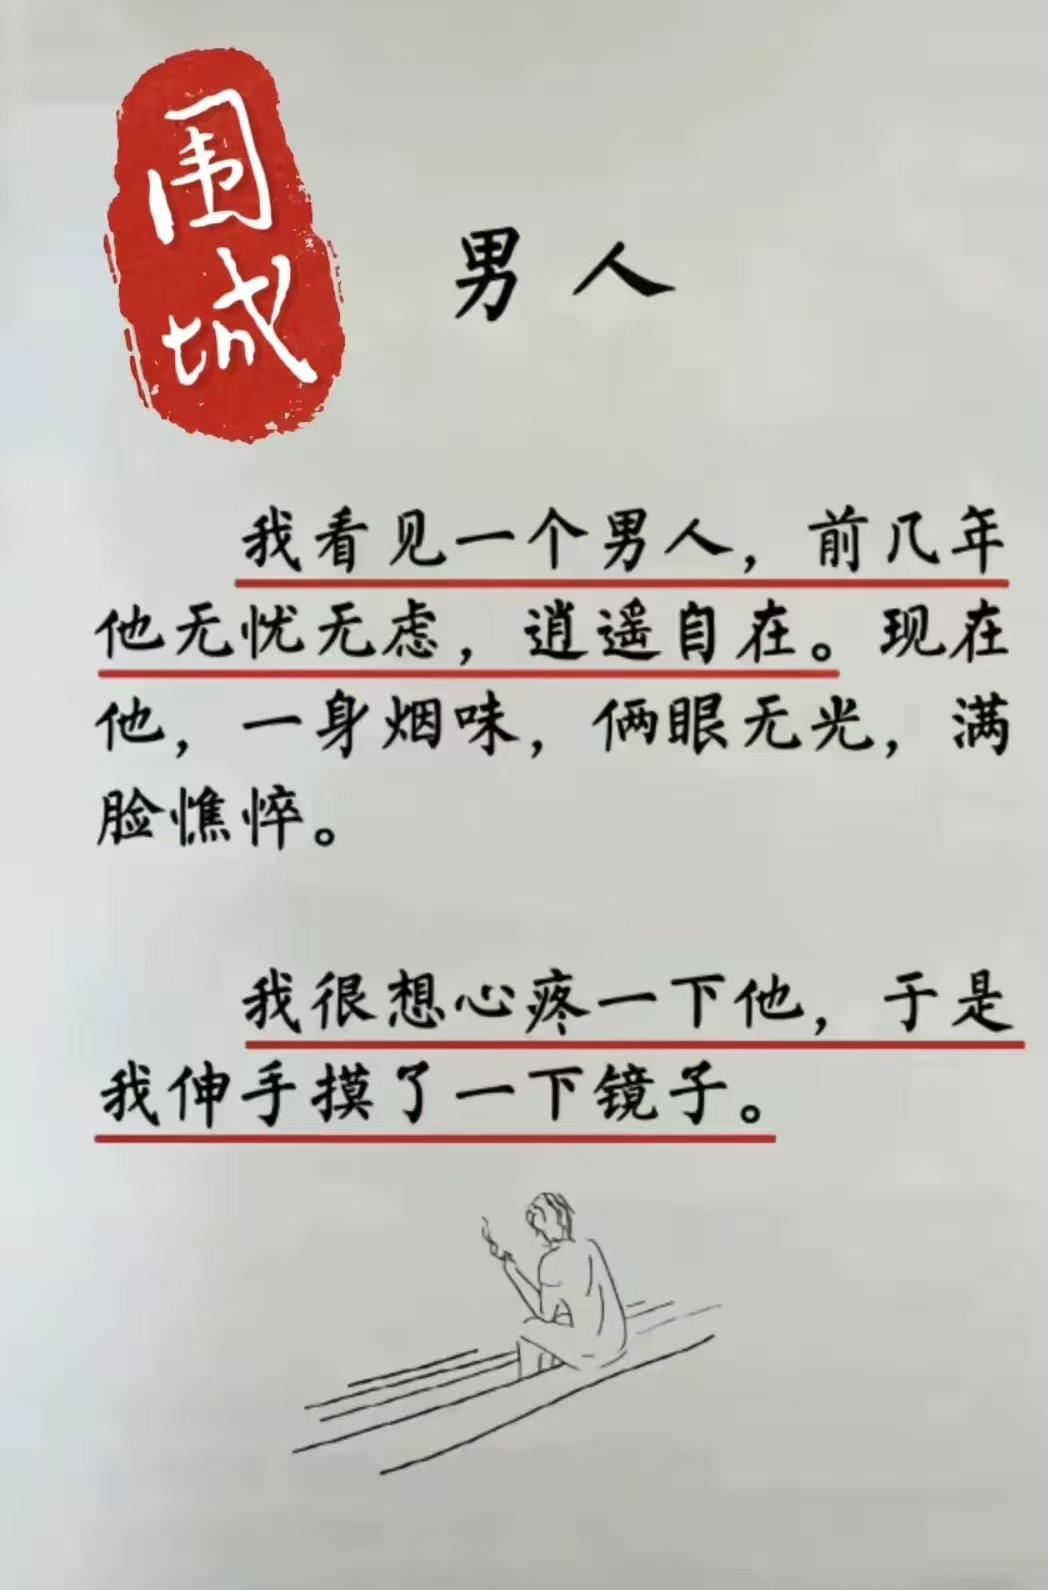 围城
男人
我看见一个男人，前几年
他无忧无虑，逍遥自在。现在
他，一身烟味，俩眼无光，满
脸憔悴。
我很想心疼一下他，于是
我伸手摸了一下镜子。